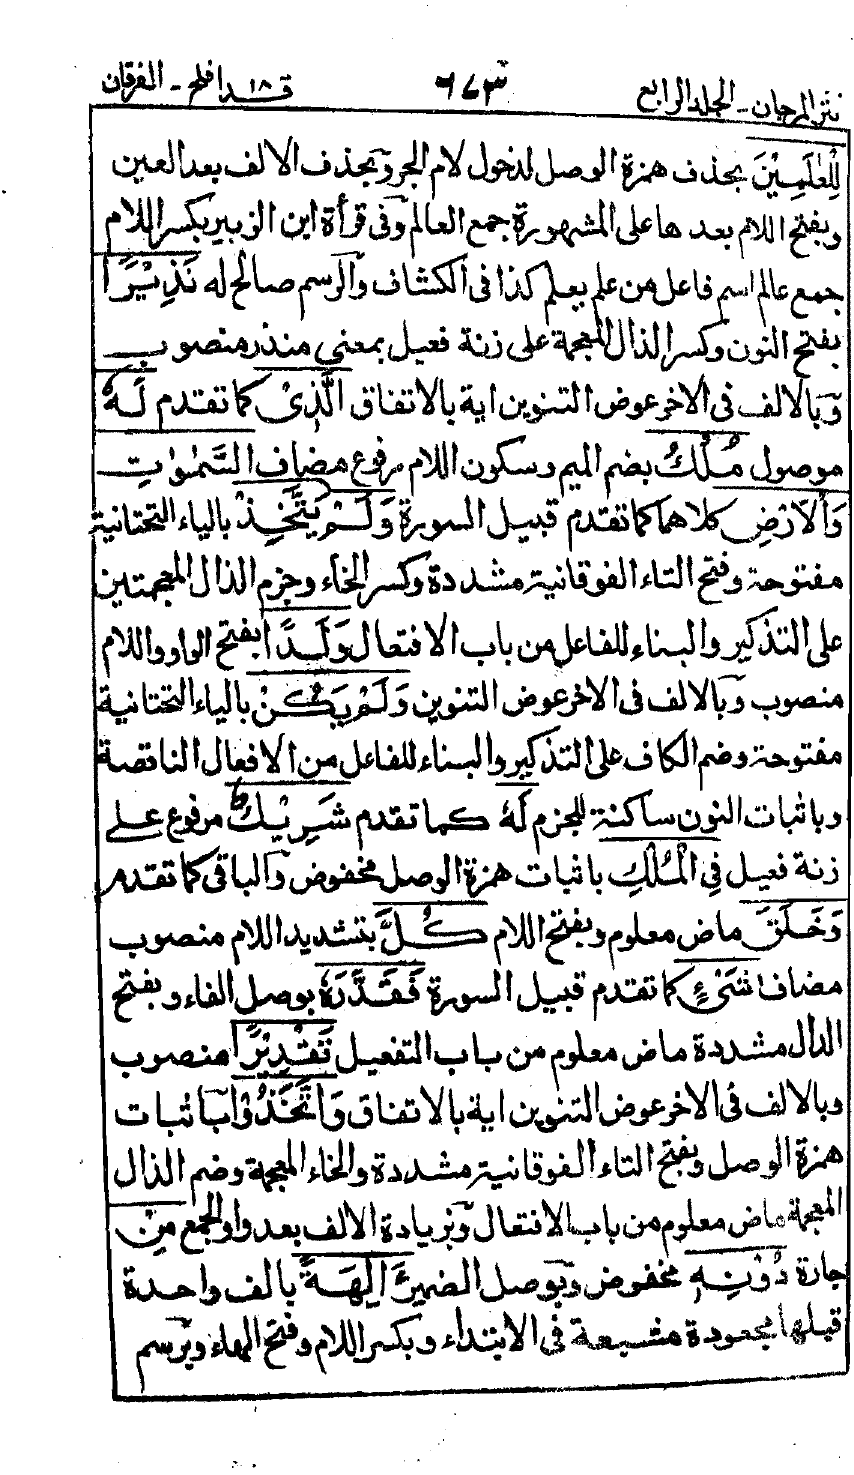 نثر المرجان - الجلد الرابع ٦٧٣ قد افلح ١٨ - الفرقان
لِلْعٰلَمِيْنَ بحذف همزة الوصل لدخول لام الجر وبحذف الالف بعد العين
وبفتح اللام بعدها على المشهورة جمع العالم وفى قرأة ابن الزبير بكسر اللام
جمع عالم اسم فاعل من علم يعلم كذا فى الكشاف والرسم صالح له نَذِيْرًا
بفتح النون وكسر الذال المعجمة على زنة فعيل بمعنى منذر منصوب
وبالالف فى الاخر عوض التنوين اية بالاتفاق الَّذِىْ كما تقدم لَهٗ
موصول مُلْكُ بضم الميم وسكون اللام مرفوع مضاف السَّمٰوٰتِ
وَالْاَرْضِ كلاهما كما تقدم قبيل السورة وَلَمْ يَتَّخِذْ بالياء التحتانية
مفتوحة وفتح التاء الفوقانية مشددة وكسر الخاء وجزم الذال المعجمتين
على التذكير والبناء للفاعل من باب الافتعال وَلَدًا بفتح الواو واللام
منصوب وبالالف فى الاخر عوض التنوين وَلَمْ يَكُنْ بالياء التحتانية
مفتوحة وضم الكاف على التذكير والبناء للفاعل من الافعال الناقصة
وباثبات النون ساكنة للجزم لَهٗ كما تقدم شَرِيْكٌ مرفوع على
زنة فعيل فِى الْمُلْكِ باثبات همزة الوصل مخفوض والباقى كما تقدم
وَخَلَقَ ماض معلوم وبفتح اللام كُلَّ بتشديد اللام منصوب
مضاف شَىْءٍ كما تقدم قبيل السورة فَقَدَّرَهٗ بوصل الفاء وبفتح
الدال مشددة ماض معلوم من باب التفعيل تَقْدِيْرًا منصوب
وبالالف فى الاخر عوض التنوين اية بالاتفاق وَاتَّخَذُوْا باثبات
همزة الوصل وبفتح التاء الفوقانية مشددة والخاء المعجمة وضم الذال
المعجمة ماض معلوم من باب الافتعال وبزيادة الالف بعد واو الجمع مِنْ
جارة دُوْنِهٖ مخفوض وبوصل الضمير اٰلِهَةً بالف واحدة
قبلها مجعودة مشبعة فى الابتداء وبكسر اللام وفتح الهاء وبرسم